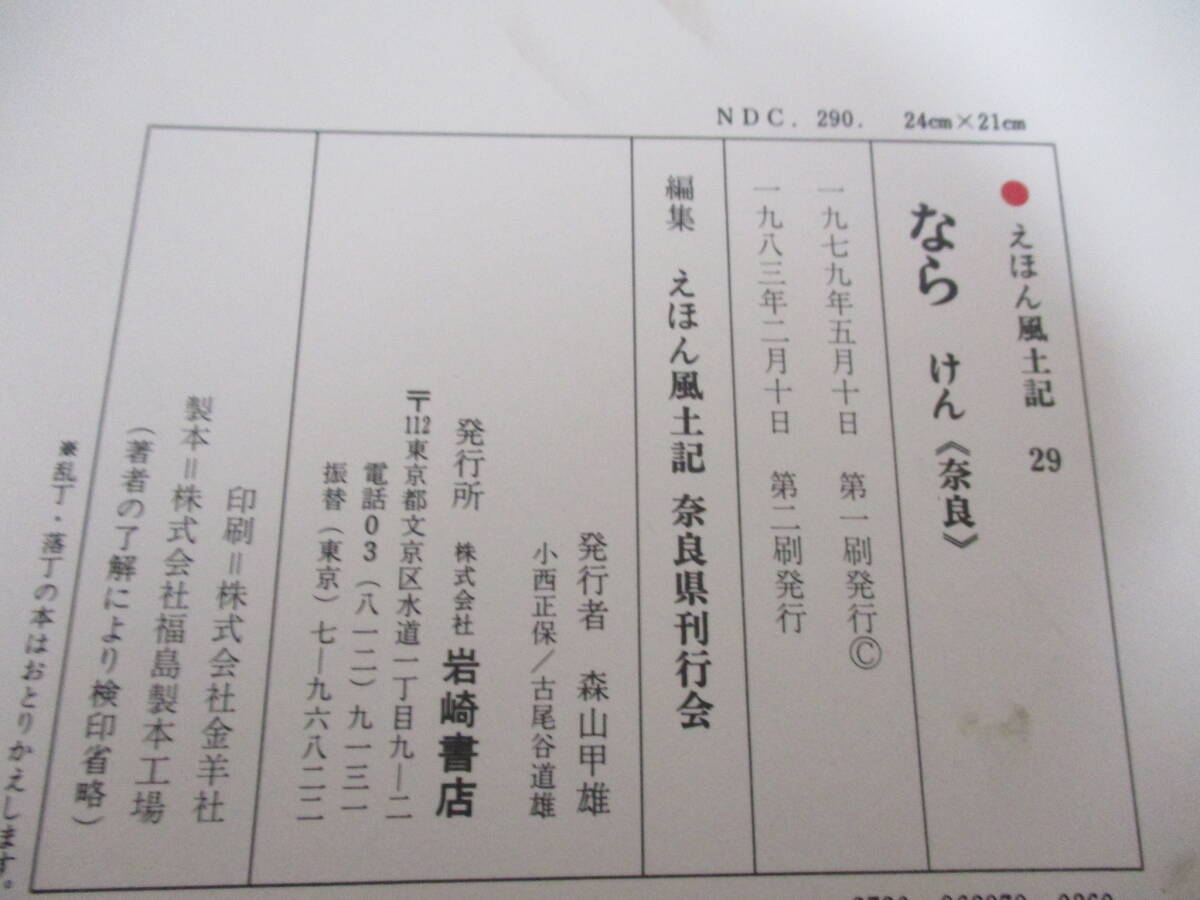 NDC. 290. 24cm×21cm
●えほん風土記 29
なら けん《奈良》
一九七九年五月十日 第一刷発行Ⓒ
一九八三年二月十日 第二刷発行
編集 えほん風土記 奈良県刊行会
発行者 森山甲雄
小西正保/古尾谷道雄
発行所 株式会社 岩崎書店
〒112東京都文京区水道一丁目九—二
電話03(八一二)九一三一
振替(東京)七—九六八二二
印刷=株式会社金羊社
製本=株式会社福島製本工場
(著者の了解により検印省略)
※乱丁・落丁の本はおとりかえします。